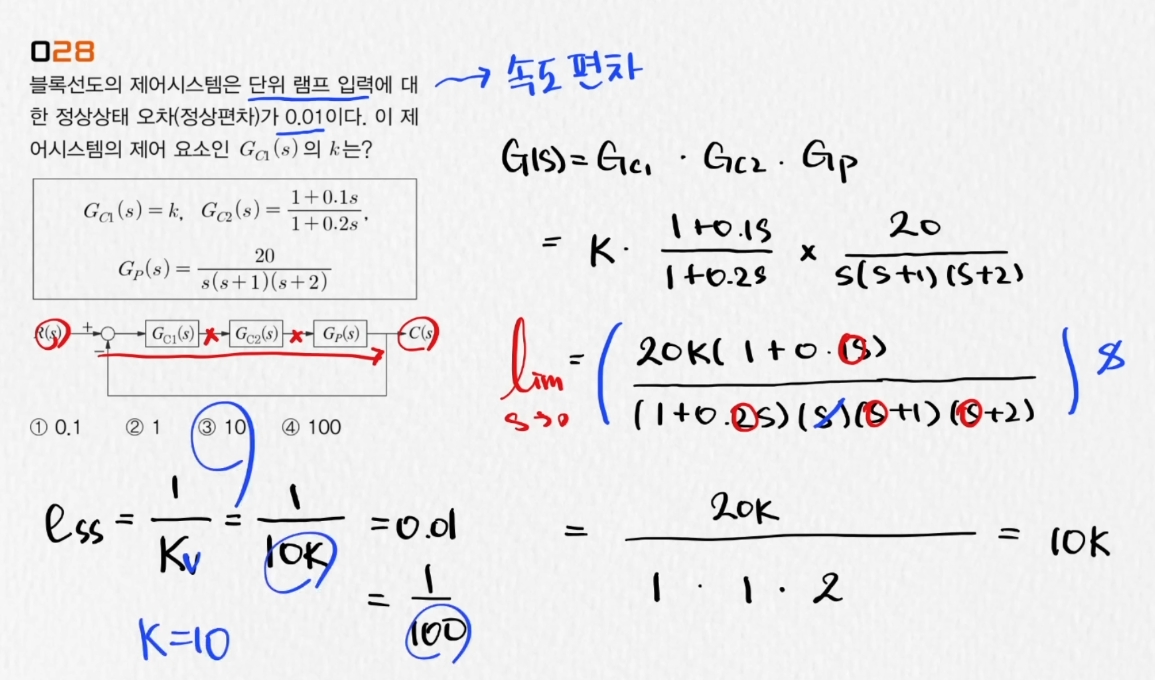 028
블록선도의 제어시스템은 단위 램프 입력에 대
한 정상상태 오차(정상편차)가 0.01이다. 이 제
어시스템의 제어 요소인 G_C1(s)의 k는?
G_C1(s) = k, G_C2(s) = (1+0.1s)/(1+0.2s),
G_P(s) = 20/(s(s+1)(s+2))
R(s) + − G_C1(s) G_C2(s) G_P(s) C(s)
① 0.1 ② 1 ③ 10 ④ 100
→ 속도 편차
G(s) = G_C1 · G_C2 · G_P
= K · (1+0.1s)/(1+0.2s) × 20/(s(s+1)(s+2))
lim s→0 = ( 20K(1+0.1s)/((1+0.2s)(s)(s+1)(s+2)) ) s
= 20K/(1 · 1 · 2) = 10K
e_ss = 1/K_v = 1/10K = 0.01
= 1/100
K=10